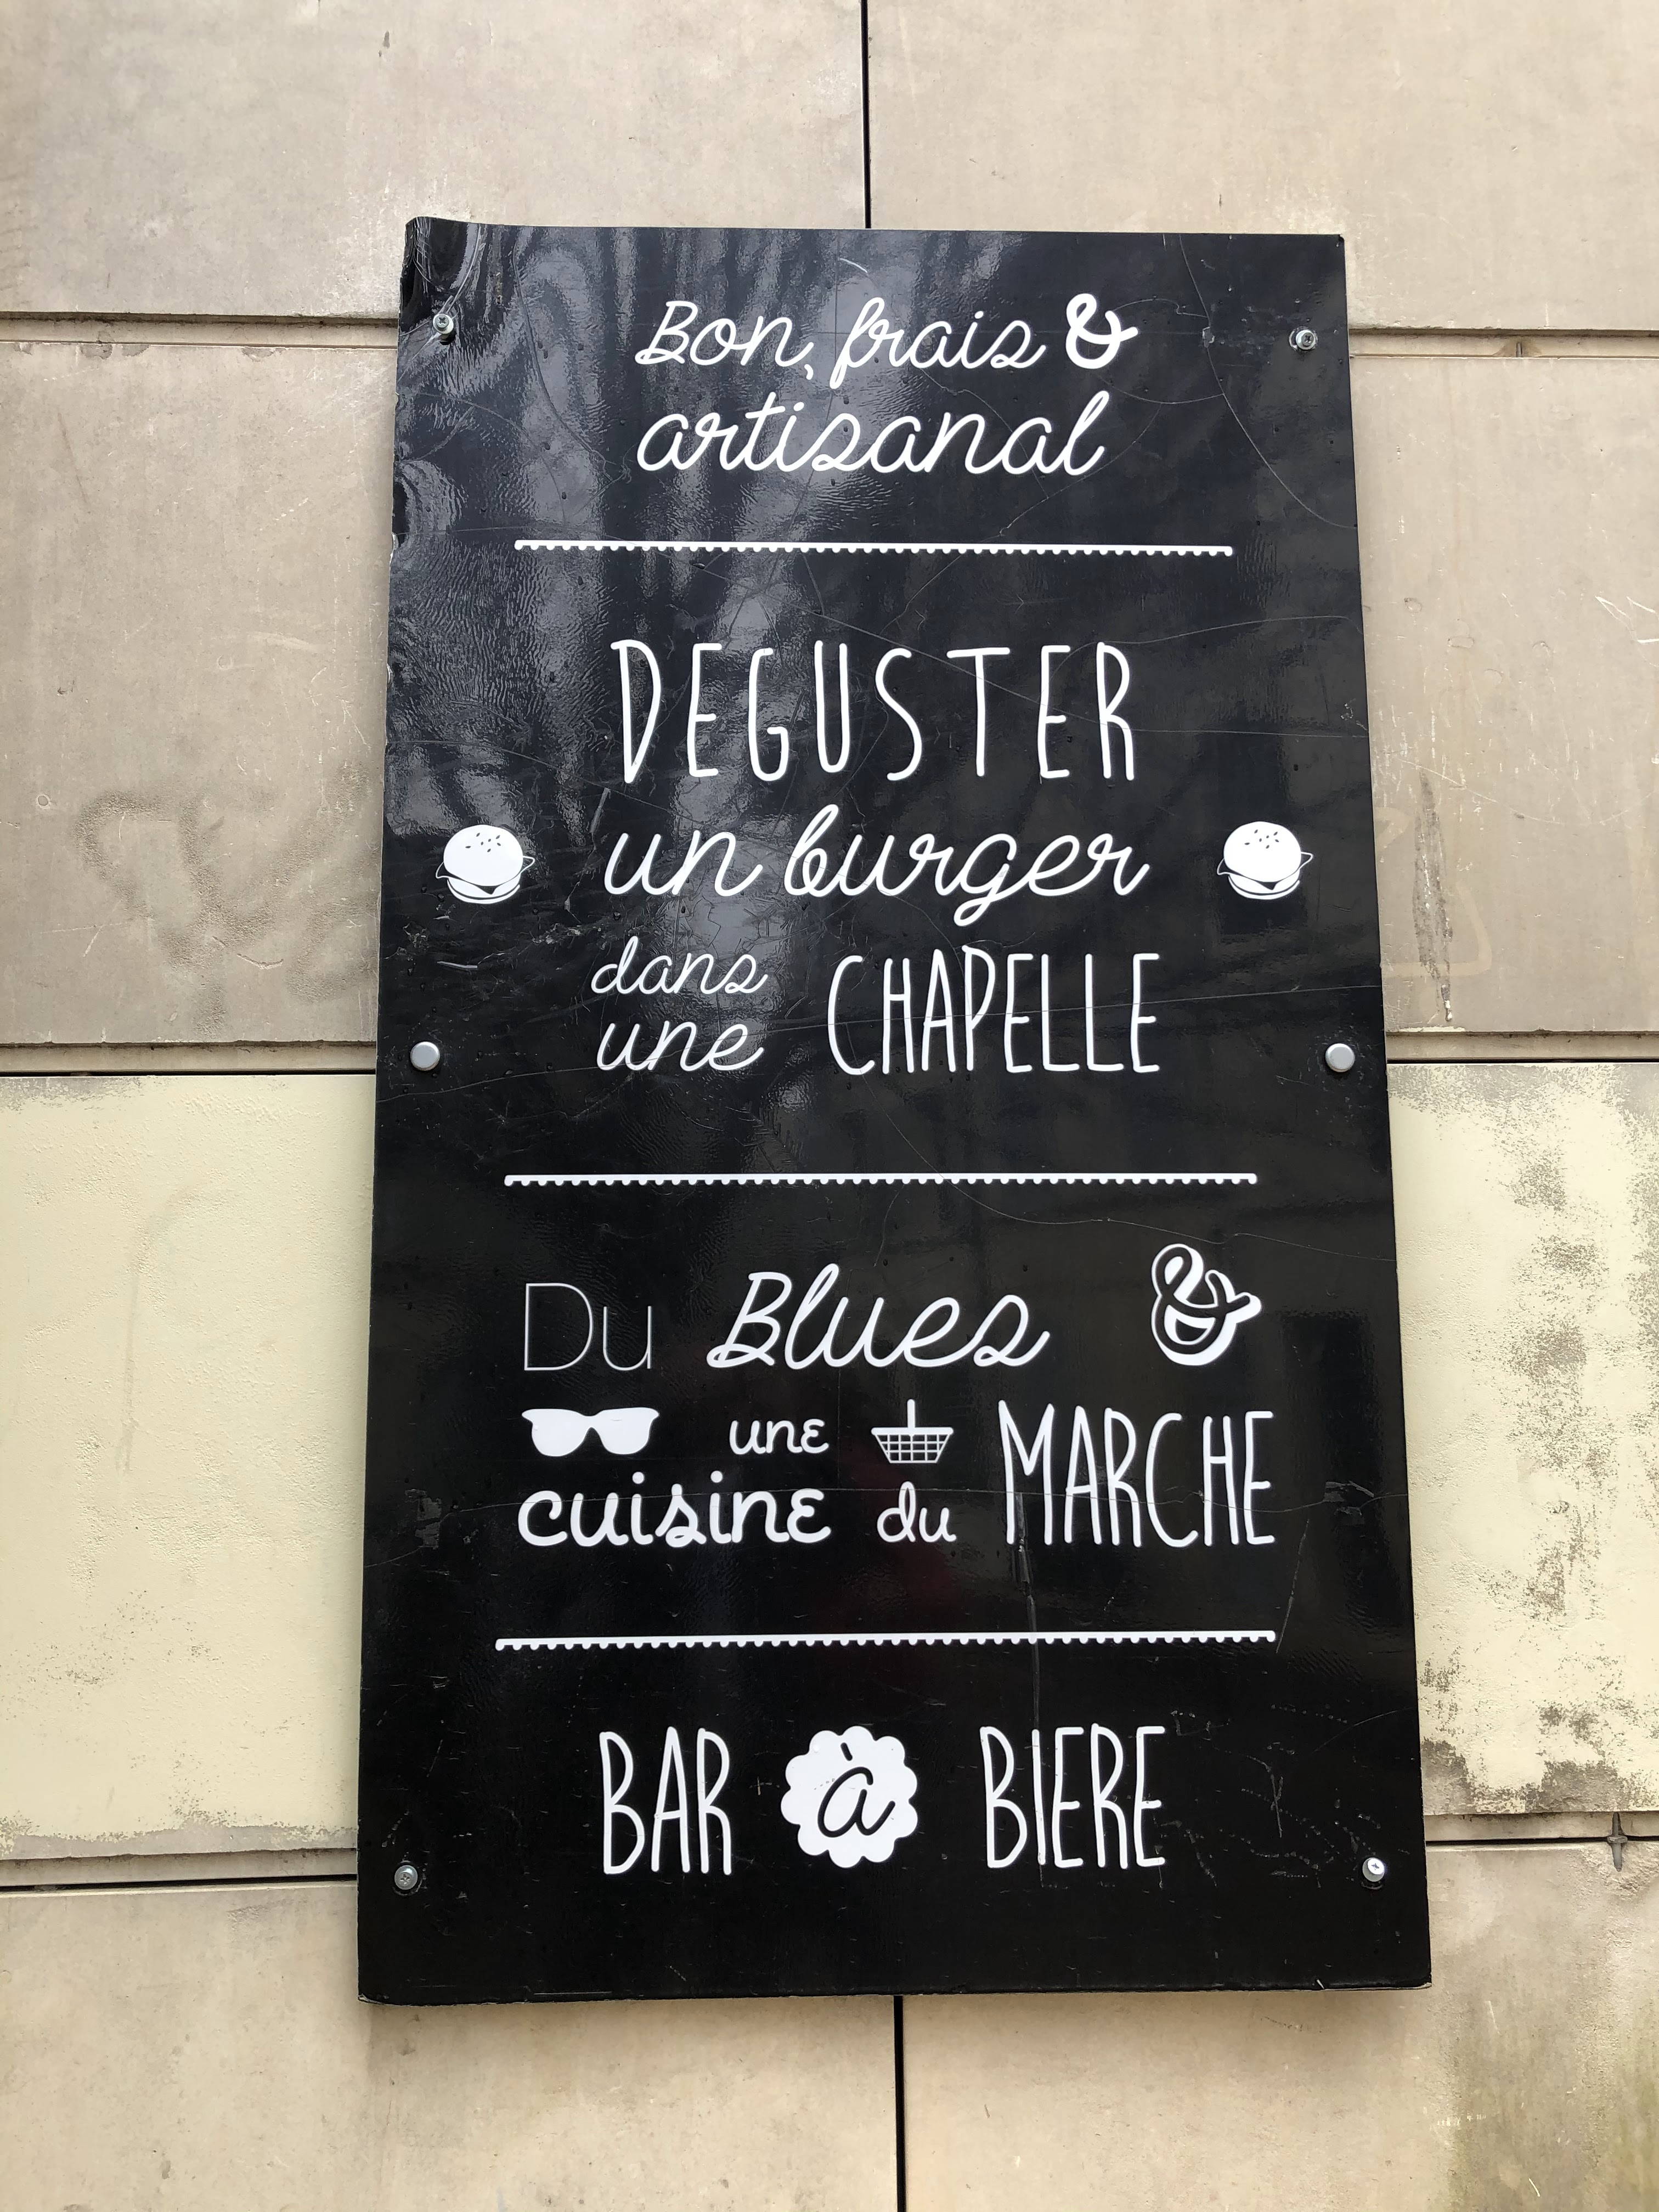 Bon, frais &
artisanal
DEGUSTER
un burger
dans
une CHAPELLE
Du Blues &
une
cuisine du MARCHE
BAR à BIERE